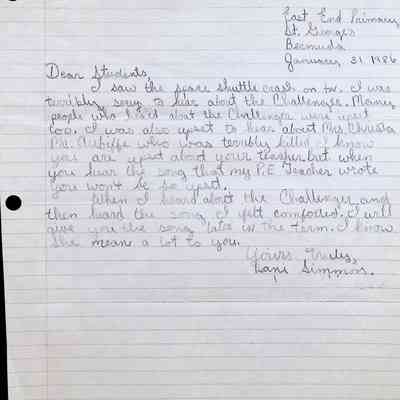 East End Primary,
St. Georges
Bermuda
January, 31 1986
Dear Students,
I saw the space shuttle crash on tv. I was
terribly sorry to hear about the Challenger. Many
people who lived about the Challenger were upset
too. I was also upset to hear about Mrs. Christa
Mc. who was terribly killed I know
you are upset about your teacher but when
you hear the song that my P.E Teacher wrote
you won't be so upset.
When I heard about the Challenger and
then heard the song I felt comforted. I will
give you the song later in the term. I know
she mean a lot to you.
Yours Truly,
Simmons.